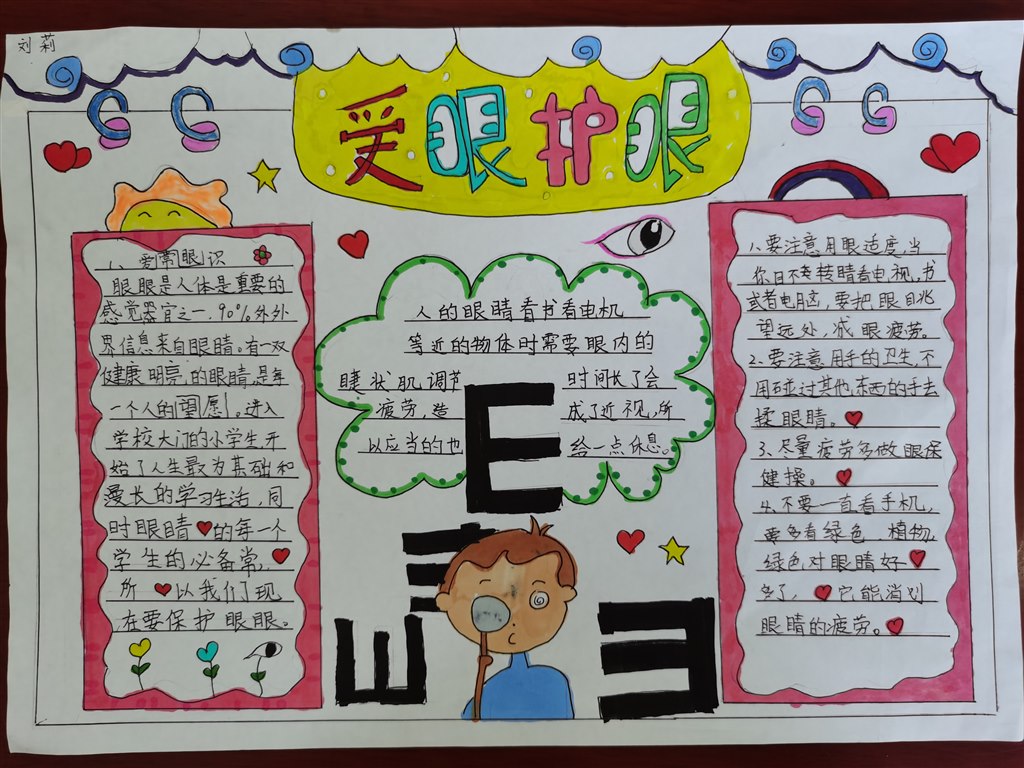 刘莉
爱眼护眼
1、爱常眼识
眼眼是人体是重要的
感觉器官之一.90%外外
界信息来自眼睛。有一双
健康明亮,的眼睛,是每
一个人的望愿。进入
学校大门的小学生开
始了人生最为基础和
漫长的学习生活,同
时眼睛的每一个
学生的必备常,
所以我们了现
在要保护眼眼。
人的眼睛看书看电机
等近的物体时需要眼内的
睫状肌调节 时间长了会
疲劳,造 成了近视,所
以应当的也 给一点休息。
E
E
E
E
1、要注意用眼适度,当
你日不转睛看电视,书
或者电脑,要把眼目兆
望远处,减眼疲劳。
2、要注意用手的卫生,不
用碰过其他,东西的手去
揉眼睛。
3、尽量疲劳多做眼保
健操。
4、不要一直看手机,
要多看绿色、植物,
绿色对眼睛好
多了,它能消划
眼睛的疲劳。